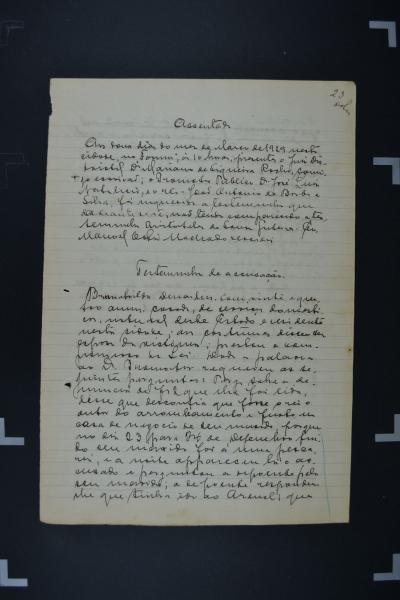 23
Assentada
Aos doze dias do mez de Março de 1929 nesta
cidade, no Forum, ás 10 horas, presente o Juiz Dis-
trictal D. Mariano de Siqueira Rocha, comi-
go escrivão, o Promotor Publico Dr José Luiz
e o réo João Antonio da
Silva, foi inquerida a testemunha que
não tendo comparecido a tes-
temunha Aristoteles de Souza Eu,
Manoel Machado escrevi
Testemunha de accusação.
com vinte e qua-
tro annos, casada, de serviços domesti-
cos, natural deste Estado e residente
nesta cidade; aos costumes disse ser
esposa da victima; prestou o com-
promisso da Lei. Dada a palavra
ao Dr Promotor requereu as se-
guintes perguntas: Perg. sobre a de-
nuncia de fls 2 que lhe foi lida,
disse que desconfia que fosse o réo o
autor do arrombamento e furto na
casa de negocio de seu marido, porque
no dia 23 para 24 de Dezembro fin-
do seu marido foi a uma pesca-
ria, e a noite appareceu lá o ac-
cusado e perguntou a depoente pelo
seu marido; a depoente respondeu
lhe que tinha ido ao Areal; que